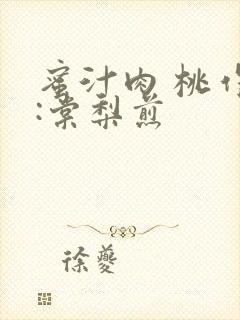 蜜汁肉桃作
:棠梨煎
徐夔